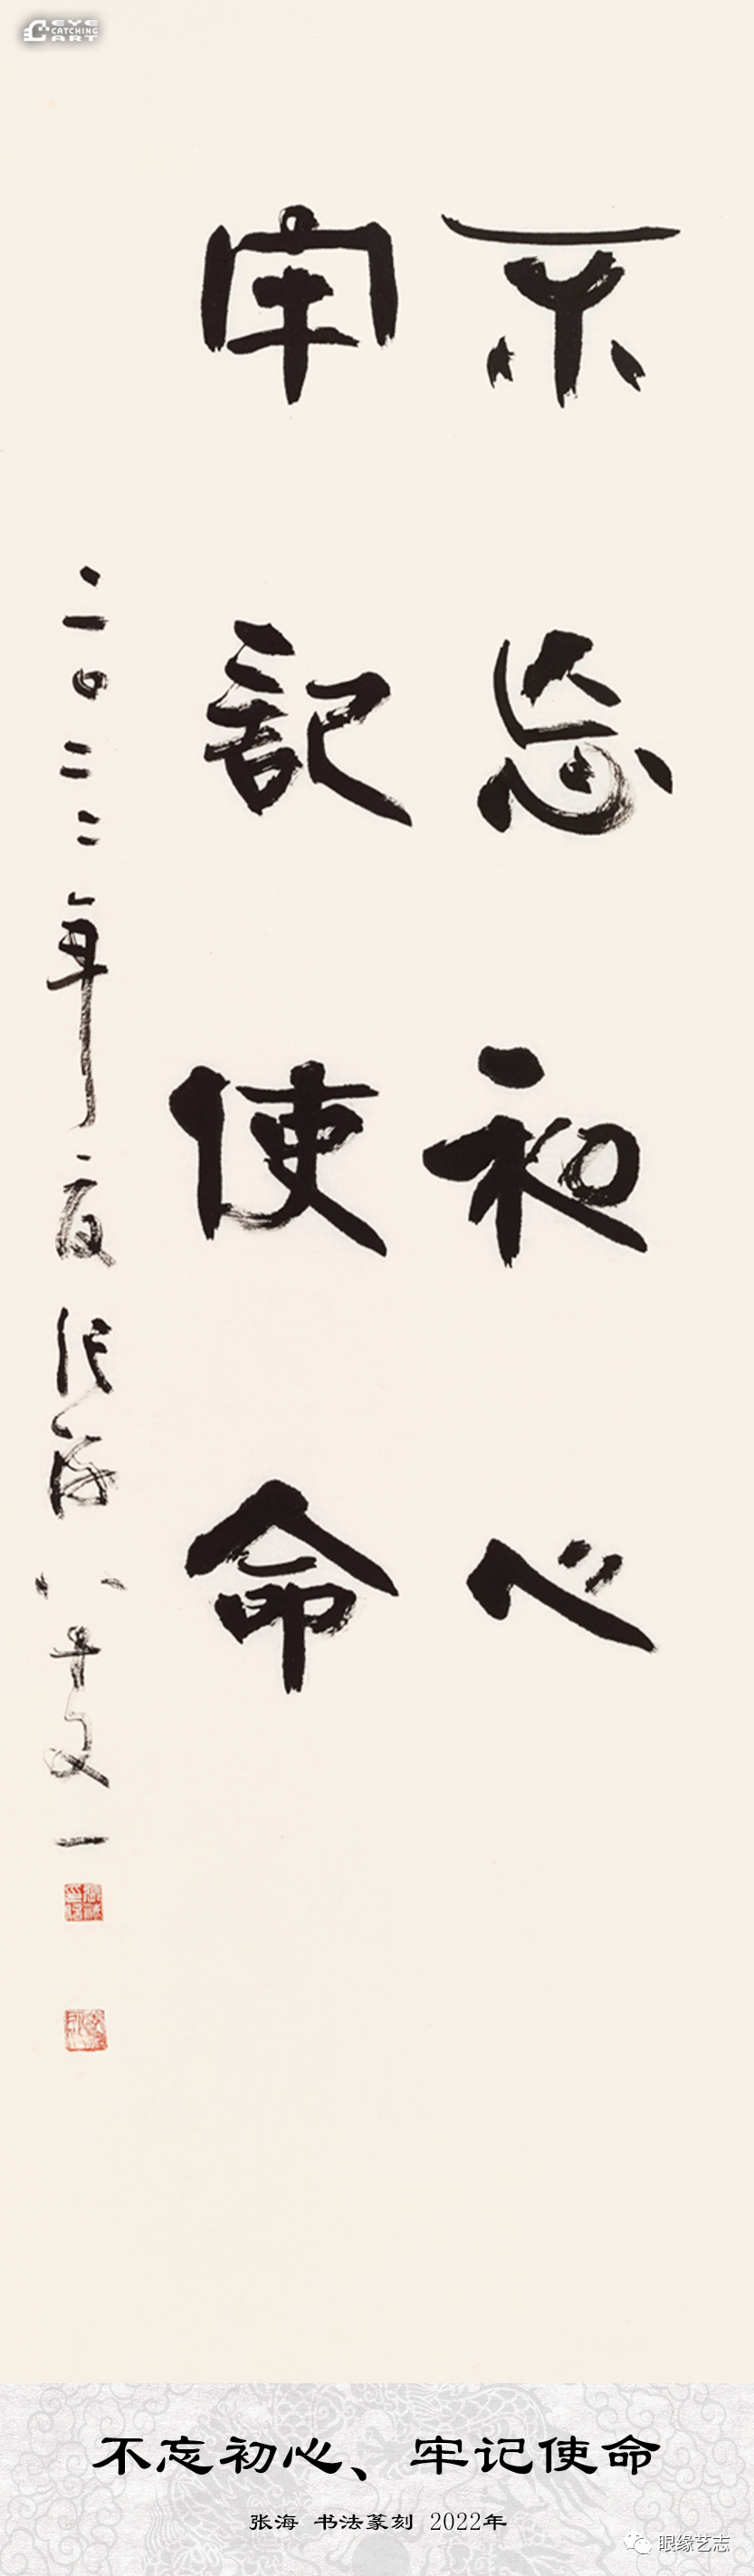 EYE
CATCHING
ART
不忘初心
牢記使命
二〇二二年夏張海八十又一
不忘初心、牢记使命
张海 书法篆刻 2022年
眼缘艺志